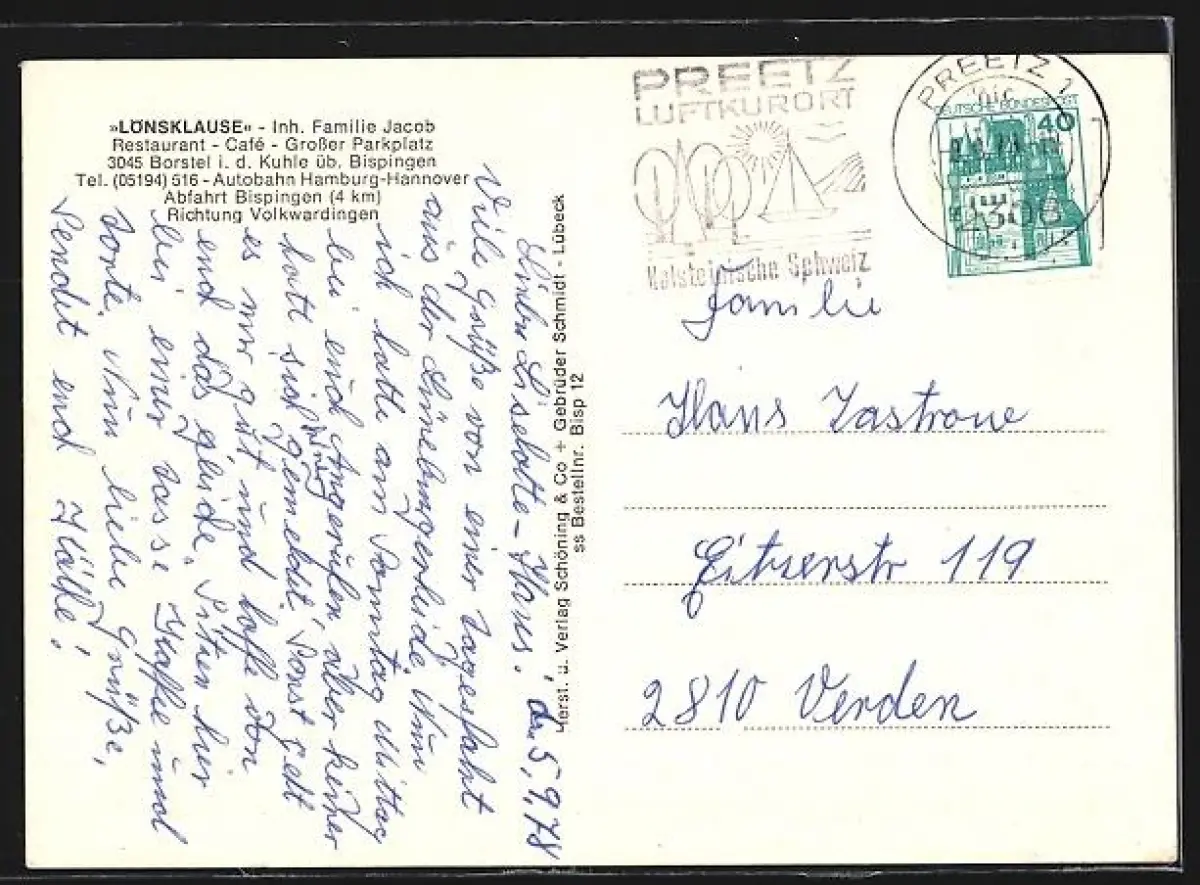 »LÖNSKLAUSE« - Inh. Familie Jacob
Restaurant - Café - Großer Parkplatz
3045 Borstel i. d. Kuhle üb. Bispingen
Tel. (05194) 516 - Autobahn Hamburg-Hannover
Abfahrt Bispingen (4 km)
Richtung Volkwardingen
Liebe Liselotte - Hans! den 5,9,78
Viele Grüße von einer Tagesfahrt
aus der Lüneburgerheide. Nun
ich hatte am Sonntag Mittag
bei euch Angerufen aber keiner
hatt sich gemeldet. Sonst geht
es mir gut und hoffe von
euch das gleiche. Sitzen hier
bei einer Tasse Kaffee und
Torte. Nun liebe Grüße,
Sendet euch Käthe!
Herst. u. Verlag Schöning & Co + Gebrüder Schmidt - Lübeck
ss Bestellnr. Bisp 12
PREETZ
LUFTKURORT
Holsteinische Schweiz
PREETZ 1
2308
DEUTSCHE BUNDESPOST
40
Familie
Hans Zastrow
Eitzerstr 119
2810 Verden